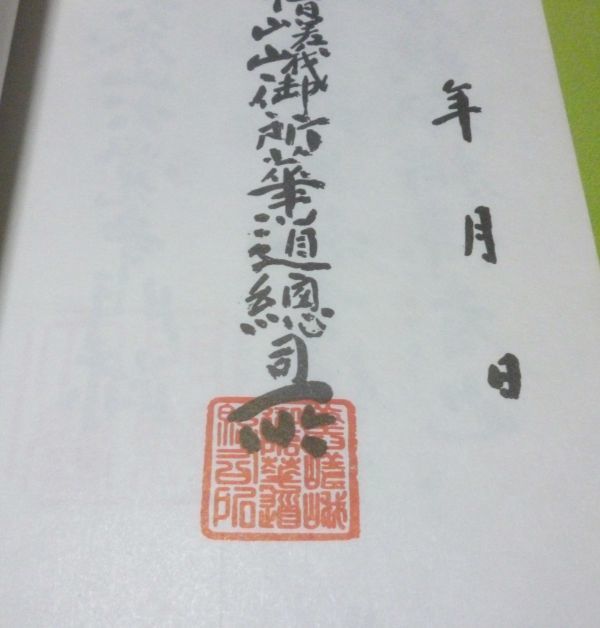 年月日
嵯峨御所華道總司所
嵯峨
華道
總司所